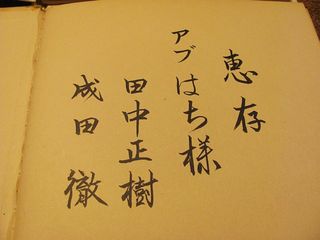 恵存
アブはち様
田中正樹
成田徹